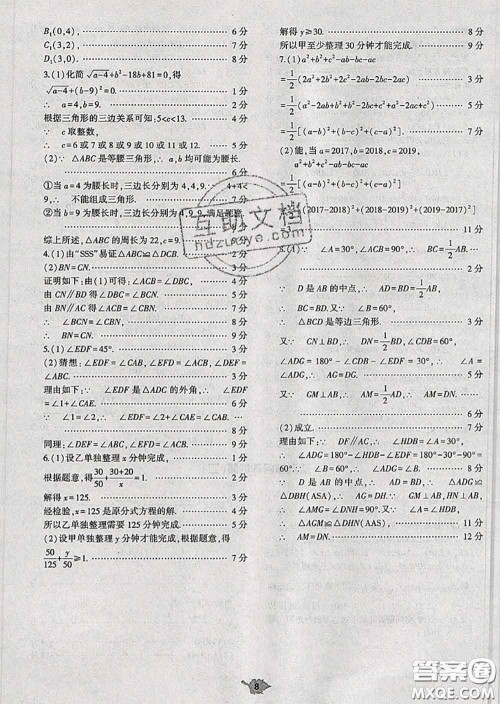 B₁(0,4), 6分
C₁(3,2), 7分
3.(1)化简√(a-4)+b²-18b+81=0,得
√(a-4)+(b-9)²=0. 1分
∴ a=4,b=9. 2分
根据三角形的三边关系可知:5<c<13. 4分
∵ c取整数,
∴ c=6或7或8或9或10或11或12. 5分
(2)∵ △ABC是等腰三角形,∴ a,b均可能为腰长. 6分
①当a=4为腰长时,三边长分别为4,4,9. 4+4<9,∴ 不能组成三角形. 7分
②当b=9为腰长时,三边长分别为4,9,9,
综上所述,△ABC的周长为22,c=9.
4.(1)由“SSS”易证△ABC≌△DCB. 2分
(2)BN=CN. 3分
证明如下:由(1)可得:∠ACB=∠DBC. 4分
由CN∥BD得∠DBC=∠BCN. 5分
由BN∥AC得∠ACB=∠CBN. 6分
∴ ∠BCN=∠CBN. 8分
∴ BN=CN. 9分
5.(1)∠EDF=45°. 3分
(2)猜想:∠EDF=∠CAB,∠EFD=∠ACB,∠DEF
=∠ABC. 4分
理由如下:∵ ∠EDF是△ADC的外角,∴ ∠EDF
=∠1+∠CAE. 6分
∵ ∠1=∠2,∴ ∠EDF=∠2+∠CAE=∠CAB.
8分
同理:∠DEF=∠ABC,∠EFD=∠ACB. 9分
6.(1)设乙单独整理x分钟完成. 1分
根据题意,得30/50+(30+20)/x=1. 4分
解得x=125.
经检验,x=125是原分式方程的解.
所以乙单独整理需要125分钟完成. 5分
(2)设甲单独整理y分钟才能完成,根据题意,得
50/125+y/50≥1. 7分
解得y≥30. 8分
所以甲至少整理30分钟才能完成. 9分
7.(1)a²+b²+c²-ab-bc-ac
=1/2(2a²+2b²+2c²-2ab-2bc-2ac) 2分
=1/2(a²-2ab+b²+b²-2bc+c²+a²-2ac+c²) 4分
=1/2[(a-b)²+(b-c)²+(a-c)²] 5分
(2)能,当a=2017,b=2018,c=2019,
a²+b²+c²-ab-bc-ac
=1/2[(a-b)²+(b-c)²+(a-c)²]
=1/2[(2017-2018)²+(2018-2019)²+(2019-2017)²]
=3. 11分
∵ ∠A=30°,∠ACB=90°,
2分
∵ D是AB的中点,∴ AD=BD=1/2AB,
∴ BC=BD. 又∵ ∠B=60°,
∴ △BCD是等边三角形. 4分
又∵ CN⊥DB,∴ DN=1/2DB. 5分
∵ ∠EDF=90°,△BCD是等边三角形,∴ ∠ADG=180°-∠CDB-∠EDF=30°,∵ ∠A=∠ADG,∴ AG=DG. 6分
又∵ GM⊥AB,∴ AM=1/2AD,∴ AM=DN.
7分
(2)成立. 7分
理由如下:∵ DF∥AC,∴ ∠HDB=∠A=30°,∠ADG=180°-∠HDB-∠EDF=60°,
∴ ∠ADG=∠B=60°. 8分
∵ D是AB的中点,∴ AD=DB,∴ △ADG≌△DBH(ASA),∴ AG=DH. 9分
∵ GM⊥AB,HN⊥AB,
∴ ∠GMA=∠DNH=90°. 又∵ ∠A=∠HDN,
∴ △AGM≌△DHN(AAS), 11分
∴ AM=DN. 12分
8
互助文档
hdzuoye.com
答案圈
MXQE.COM